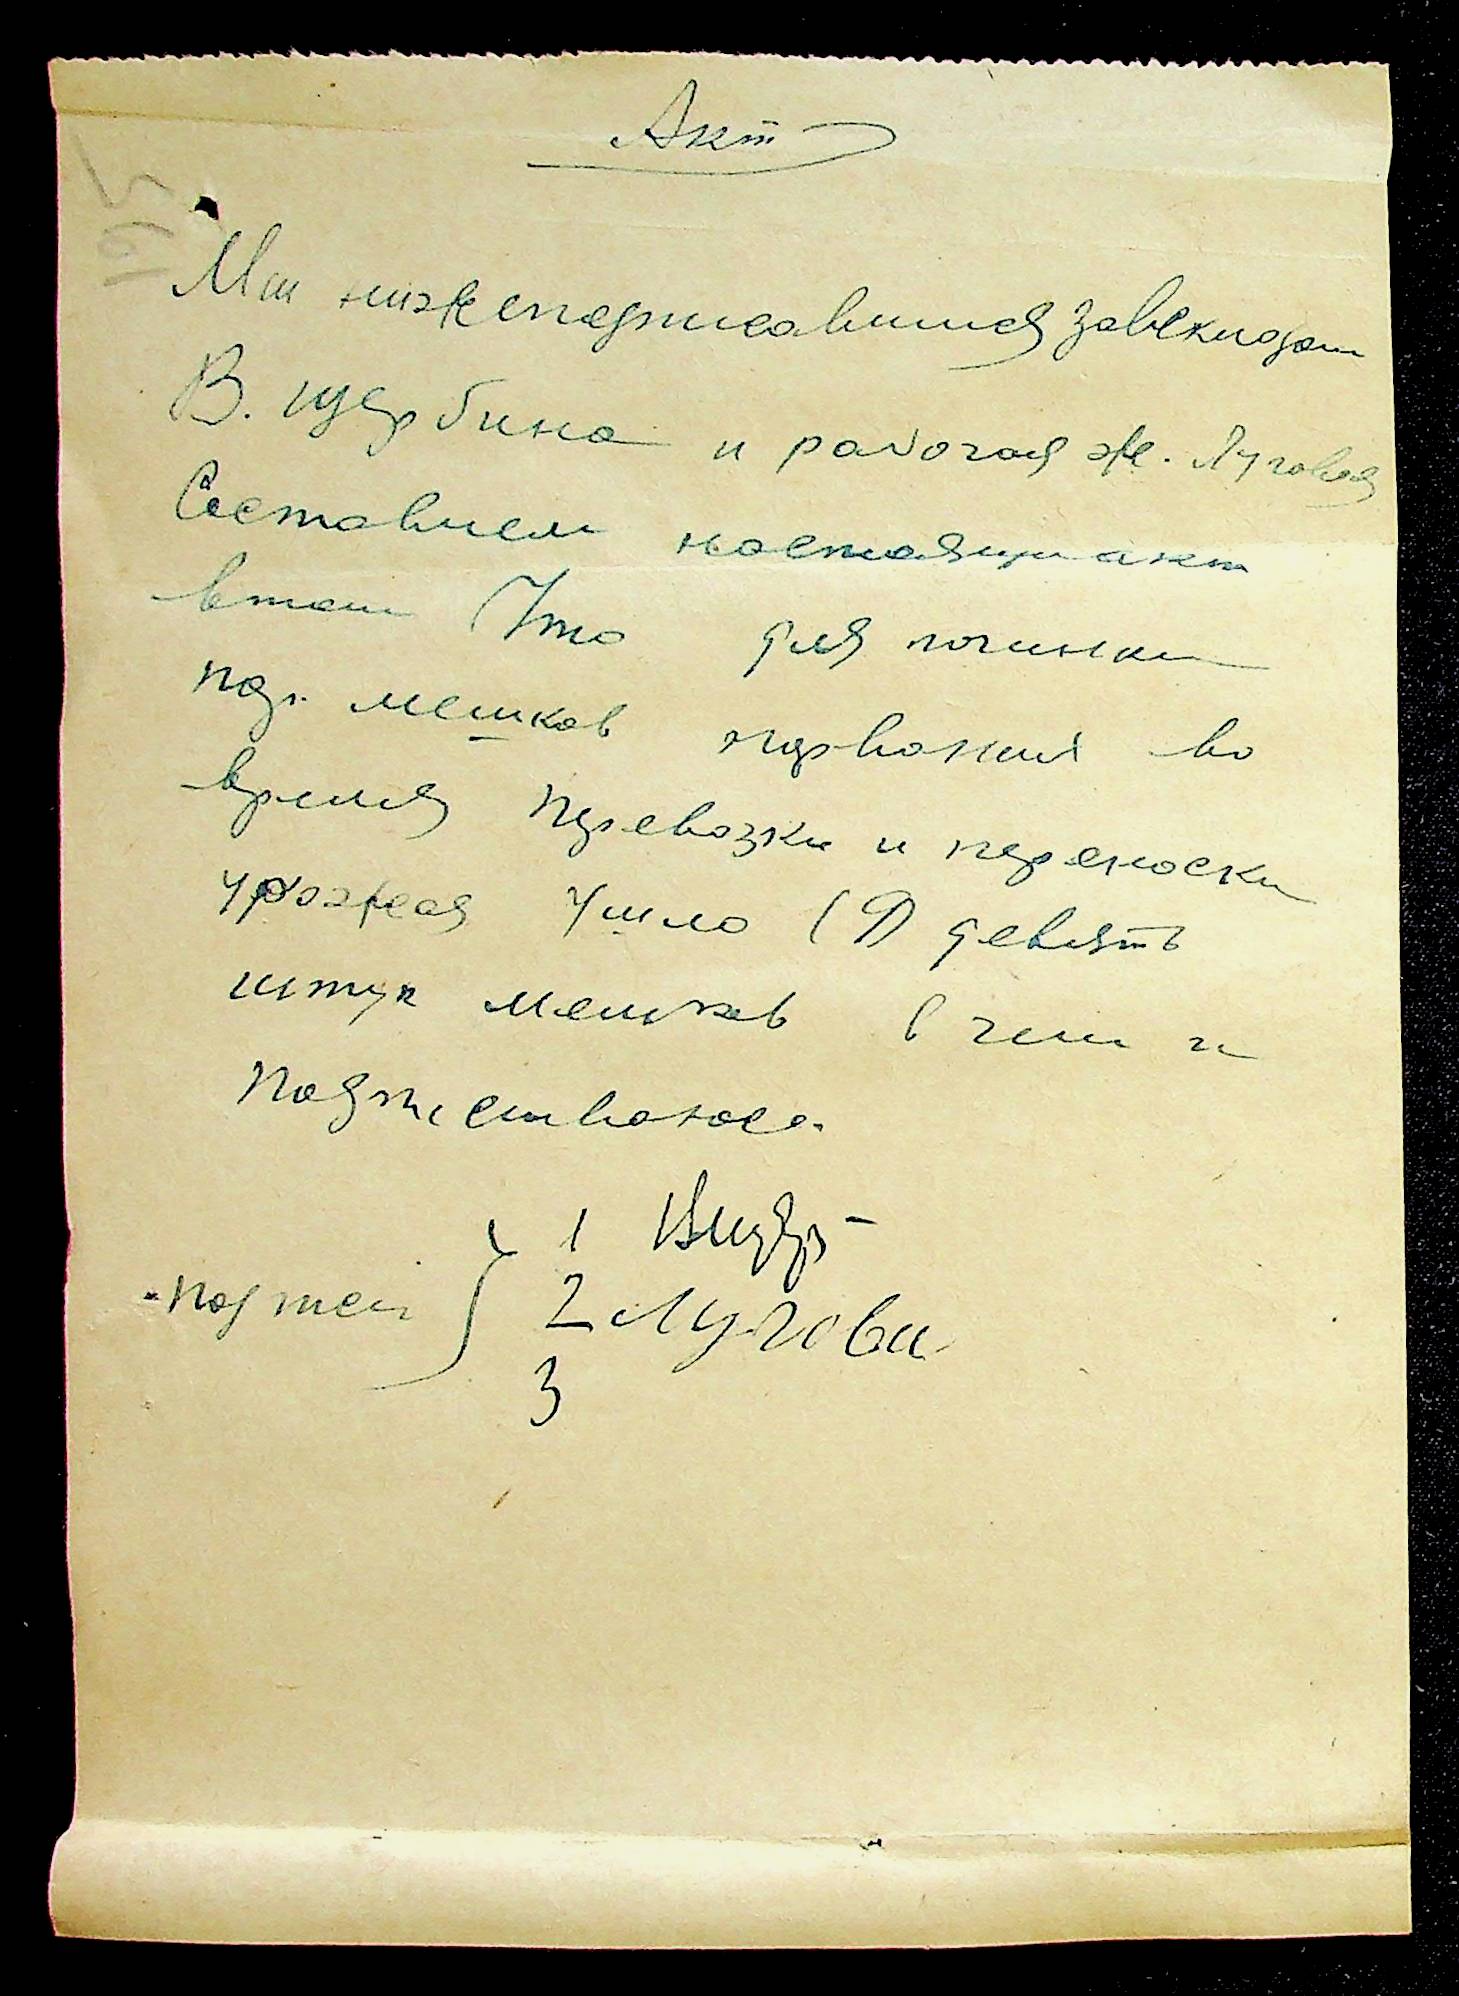 Акт
Мы нижеподписавшися завскладом
В. Щербина и рабочая Ж. Луговая
Составили настоящи акт
втом Что для починки
под. мешков порваных во
время перевозки и переноски
урожая Ушло (9) девять
штук мешков в чем и
подписываюсь.
подписи } 1 ВЩерб
2 Лугова
3